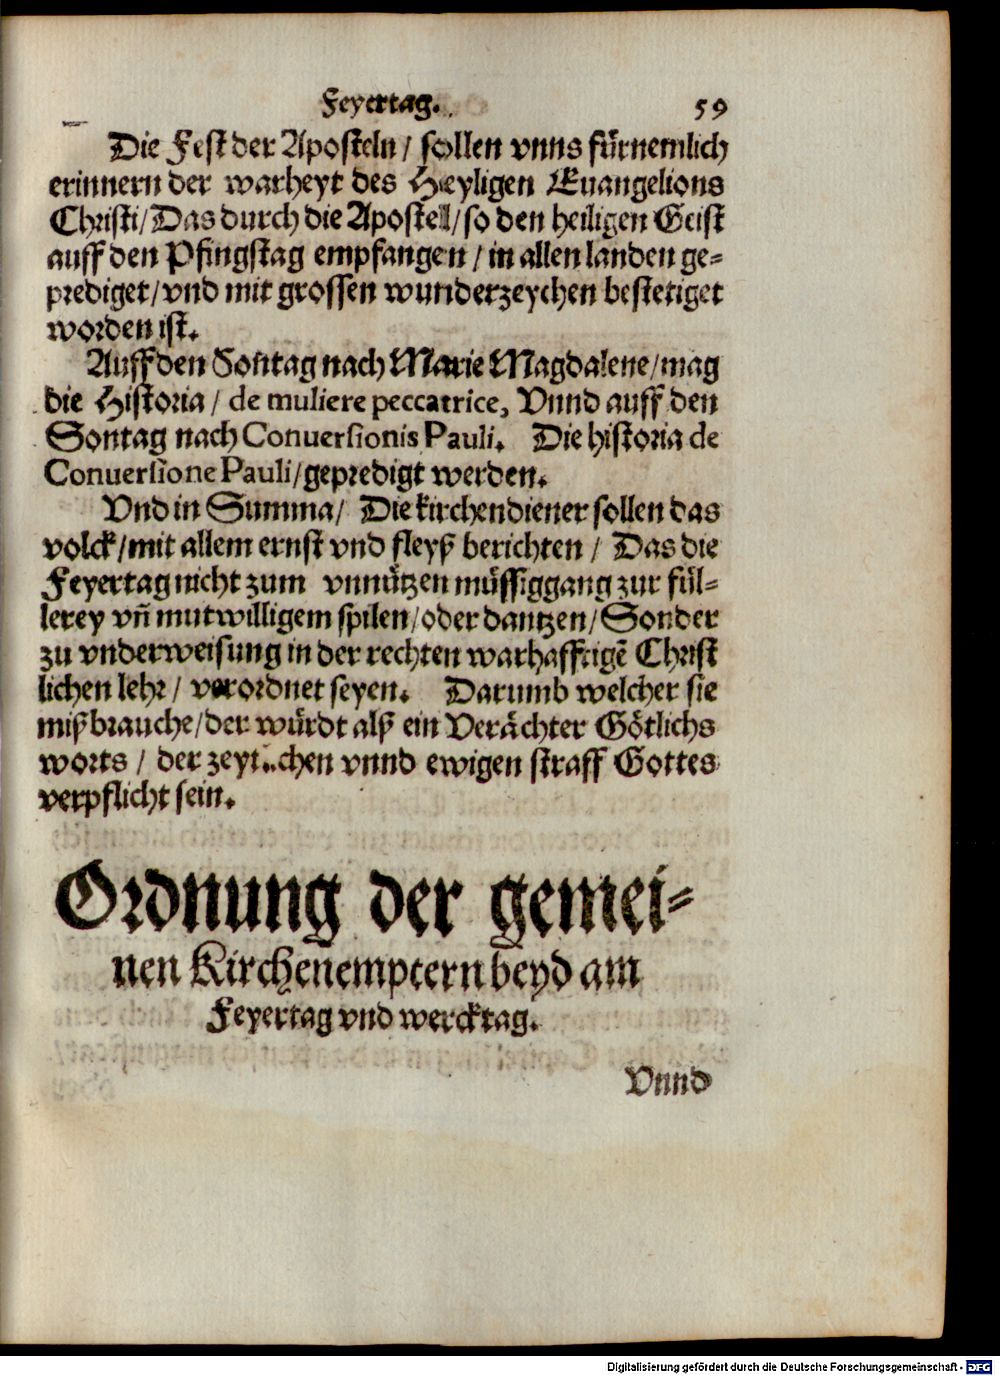 Feyertag. 59
Die Fest der Aposteln / sollen vnns fürnemlich
erinnern der warheyt des Heyligen Euangelions
Christi/Das durch die Apostel/so den heiligen Geist
auff den Pfingstag empfangen / in allen landen ge-
prediget/vnd mit grossen wunderzeychen bestetiget
worden ist.
Auff den Sontag nach Marie Magdalene/mag
die Historia / de muliere peccatrice, Vnnd auff den
Sontag nach Conuersionis Pauli. Die historia de
Conuersione Pauli/gepredigt werden.
Vnd in Summa/ Die kirchendiener sollen das
volck/mit allem ernst vnd fleyß berichten / Das die
Feyertag nicht zum vnnützen müssiggang zur fül-
lerey vñ mutwilligem spilen/oder dantzen/Sonder
zu vnderweisung in der rechten warhafftigẽ Christ
lichen lehr / verordnet seyen. Darumb welcher sie
mißbrauche/der würdt alß ein Verächter Götlichs
worts / der zeytlichen vnnd ewigen straff Gottes
verpflicht sein.
Ordnung der gemei-
nen Kirchenemptern beyd am
Feyertag vnd wercktag.
Vnnd
Digitalisierung gefördert durch die Deutsche Forschungsgemeinschaft - DFG